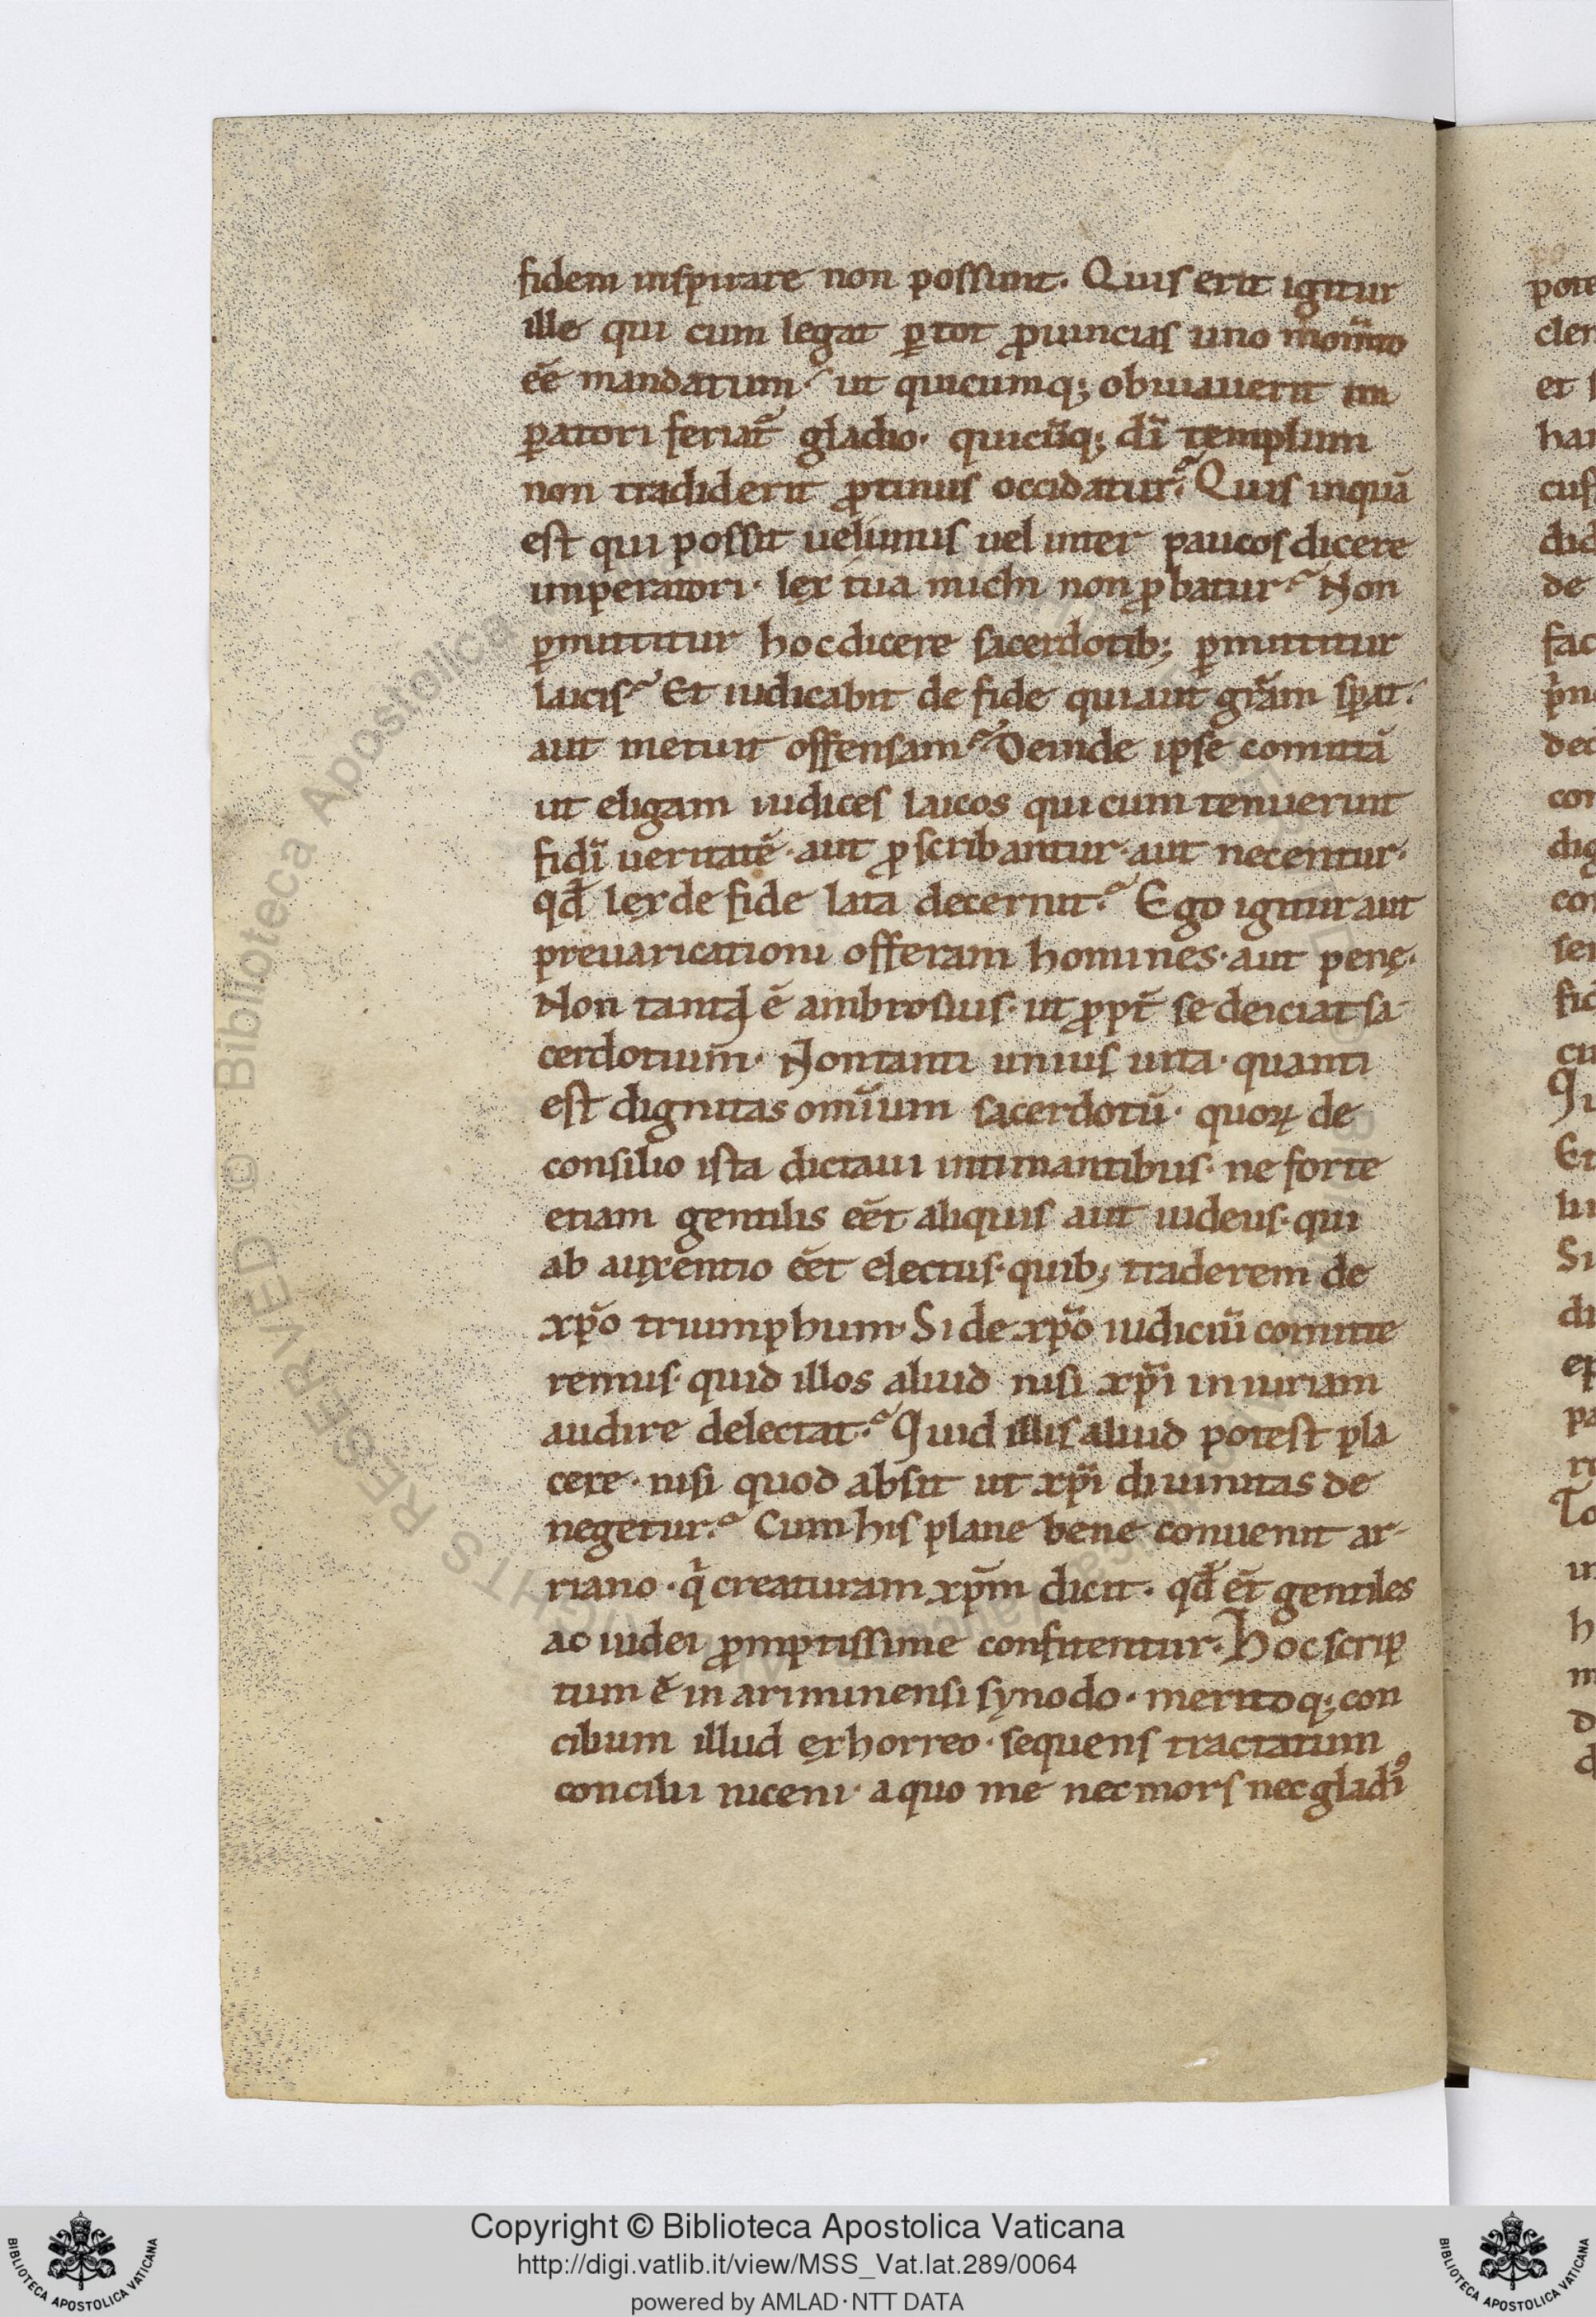 fidem inspirare non possunt. Quis erit igitur
ille qui cum legat ꝑ tot ꝓuincias uno mom̄to
eē mandatum ut quicumq; obuiauerit im
ꝑatori feriat᷑ gladio. quicūq; dī templum
non tradiderit ꝓtinus occidatur? Quis inquā
est qui possit uel unus uel inter paucos dicere
imperatori. lex tua michi non ꝓbatur? Non
ꝑmittitur hoc dicere sacerdotib; ꝑmittitur
laicis? Et iudicabit de fide qui aut gr̄am sꝑat.
aut metuit offensam? Deinde ipse comittā
ut eligam iudices laicos qui cum tenuerint
fidī ueritatē. aut ꝓscribantur. aut necentur.
qđ lex de fide lata decernit? Ego igitur aut
preuaricationi offeram homines. aut penę.
Non tantꝗ ē ambrosius. ut ꝓpt̄ se deiciat sa-
cerdotium. Non tanti unius uita. quanti
est dignitas omīum sacerdotū. quoꝝ de
consilio ista dictaui intimantibus. ne forte
etiam gentilis eēt aliquis aut iudeus. qui
ab auxentio eēt electus. quib; traderem de
xp̄o triumphum. Si de xp̄o iudiciū comitte
remus. quid illos aliud nisi xp̄i iniuriam
audire delectat? Quid illis aliud potest pla
cere. nisi quod absit ut xp̄i diuinitas de
negetur? Cum his plane bene conuenit ar-
riano. qͥ creaturam xp̄m dicit. qđ et̄ gentiles
ac iudei ꝓmptissime confitentur. Hoc scrip
tum ē in ariminensi synodo. meritoq; con
cilium illud exhorreo. sequens tractatum
concilii niceni. a quo me nec mors nec gladi᷒
Copyright © Biblioteca Apostolica Vaticana
http://digi.vatlib.it/view/MSS_Vat.lat.289/0064
powered by AMLAD·NTT DATA